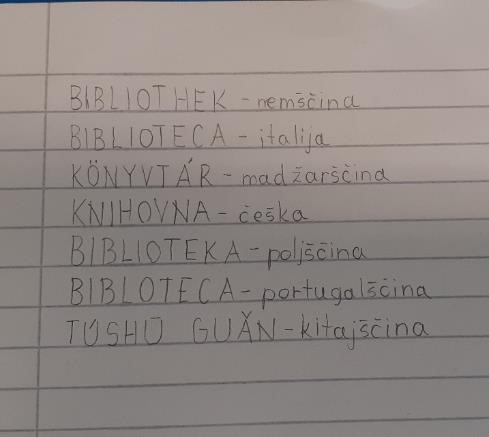 BIBLIOTHEK - nemščina
BIBLIOTECA - italija
KÖNYVTÁR - madžarščina
KNIHOVNA - češka
BIBLIOTEKA - poljščina
BIBLOTECA - portugalščina
TÚSHŪ GUǍN - kitajščina